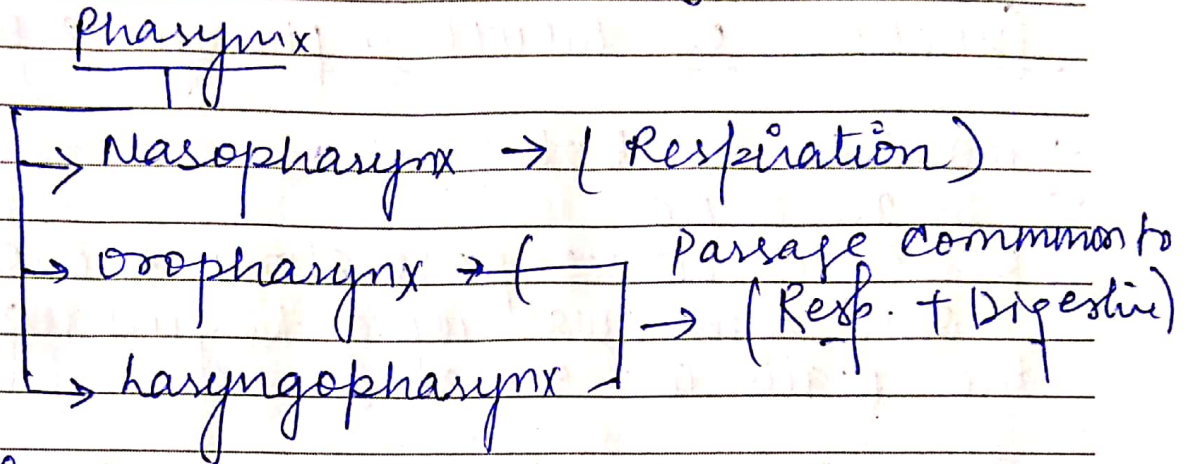 Pharynx
→ Nasopharynx → ( Respiration )
→ oropharynx → ( Passage common to
→ ( Resp. + Digestive )
→ Laryngopharynx